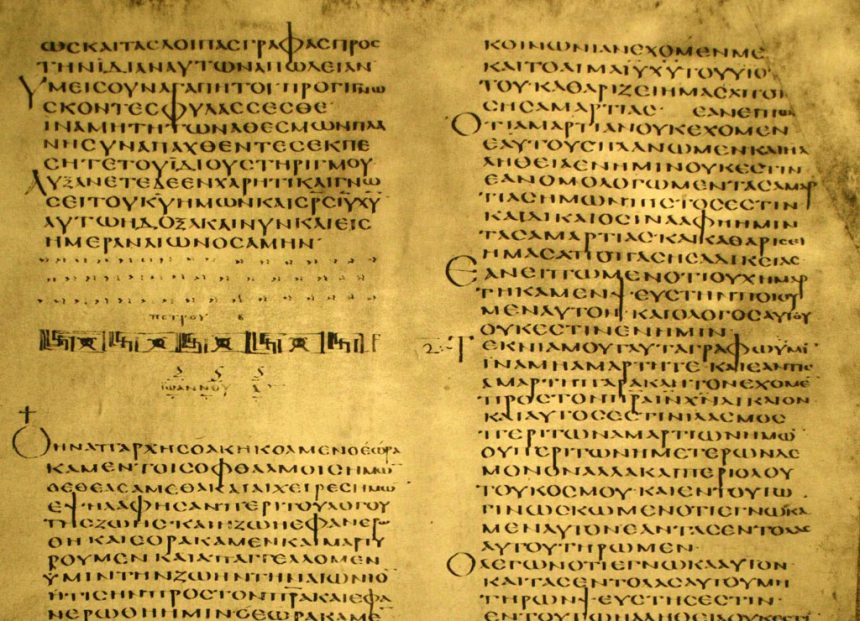 ΩϹΚΑΙΤΑϹΛΟΙΠΑϹΓΡΑΦΑϹΠΡΟϹ
ΤΗΝΪΔΙΑΝΑΥΤΩΝΑΠΩΛΕΙΑΝ
ΥΜΕΙϹΟΥΝΑΓΑΠΗΤΟΙΠΡΟΓΙΝΩ
ϹΚΟΝΤΕϹΦΥΛΑϹϹΕϹΘΕ
ΙΝΑΜΗΤΗΤΩΝΑΘΕϹΜΩΝΠΛΑ
ΝΗϹΥΝΑΠΑΧΘΕΝΤΕϹΕΚΠΕ
ϹΗΤΕΤΟΥΪΔΙΟΥϹΤΗΡΙΓΜΟΥ
ΑΥΞΑΝΕΤΕΔΕΕΝΧΑΡΗΤΙΚΑΙΓΝΩ
ϹΕΙΤΟΥΚ̅Υ̅ΗΜΩΝΚΑΙϹ̅Ρ̅ϹΙ̅Υ̅Χ̅Υ̅
ΑΥΤΩΗΔΟΞΑΚΑΙΝΥΝΚΑΙΕΙϹ
ΗΜΕΡΑΝΑΙΩΝΟϹΑΜΗΝ·
ΠΕΤΡΟΥ Β
ΪΩΑΝΝΟΥ Α
ΟΗΝΑΠΑΡΧΗϹΟΑΚΗΚΟΑΜΕΝΟΕΩΡΑ
ΚΑΜΕΝΤΟΙϹΟΦΘΑΛΜΟΙϹΗΜΩ
ΟΕΘΕΑϹΑΜΕΘΑΚΑΙΑΙΧΕΙΡΕϹΗΜΩ
ΕΨΗΛΑΦΗϹΑΝΠΕΡΙΤΟΥΛΟΓΟΥ
ΤΗϹΖΩΗϹ·ΚΑΙΗΖΩΗΕΦΑΝΕΡΩ
ΘΗΚΑΙΕΟΡΑΚΑΜΕΝΚΑΙΜΑΡΤΥ
ΡΟΥΜΕΝΚΑΙΑΠΑΓΓΕΛΛΟΜΕΝ
ΫΜΙΝΤΗΝΖΩΗΝΤΗΝΑΙΩΝΙΟ
ΗΤΙϹΗΝΠΡΟϹΤΟΝΠ̅Ρ̅Α̅ΚΑΙΕΦΑ
ΝΕΡΩΘΗΗΜΙΝ·ΟΕΩΡΑΚΑΜΕ
ΚΟΙΝΩΝΙΑΝΕΧΟΜΕΝΜΕ
ΚΑΙΤΟΑΙΜΑΙ̅Υ̅Χ̅Υ̅ΤΟΥΥΙΟΥ
ΤΟΥΚΑΘΑΡΙΖΕΙΗΜΑϹΑΠΟΠΑ
ϹΗϹΑΜΑΡΤΙΑϹ· ΕΑΝΕΙΠΩ
ΟΤΙΑΜΑΡΤΙΑΝΟΥΚΕΧΟΜΕΝ
ΕΑΥΤΟΥϹΠΛΑΝΩΜΕΝΚΑΙΗΑ
ΛΗΘΕΙΑΕΝΗΜΙΝΟΥΚΕϹΤΙΝ
ΕΑΝΟΜΟΛΟΓΩΜΕΝΤΑϹΑΜΑΡ
ΤΙΑϹΗΜΩΝΠΙϹΤΟϹΕϹΤΙΝ
ΚΑΙΔΙΚΑΙΟϹΙΝΑΑΦΗΗΜΙΝ
ΤΑϹΑΜΑΡΤΙΑϹ·ΚΑΙΚΑΘΑΡΙϹΕΙ
ΗΜΑϹΑΠΟΠΑϹΗϹΑΔΙΚΕΙΑϹ
ΕΑΝΕΙΠΩΜΕΝΟΤΙΟΥΧΗΜΑΡ
ΤΗΚΑΜΕΝΨΕΥϹΤΗΝΠΟΙΟΥ
ΜΕΝΑΥΤΟΝ·ΚΑΙΟΛΟΓΟϹΑΥΤΟΥ
ΟΥΚΕϹΤΙΝΕΝΗΜΙΝ·
2 ΤΕΚΝΙΑΜΟΥΤΑΥΤΑΓΡΑΦΩΥΜΙ
ΙΝΑΜΗΑΜΑΡΤΗΤΕ·ΚΑΙΕΑΝΤΙϹ
ΑΜΑΡΤΗΠΑΡΑΚΛΗΤΟΝΕΧΟΜΕ
ΠΡΟϹΤΟΝΠ̅Ρ̅Α̅Ι̅Ν̅Χ̅Ν̅ΔΙΚΑΙΟΝ
ΚΑΙΑΥΤΟϹΕϹΤΙΝΙΛΑϹΜΟϹ
ΠΕΡΙΤΩΝΑΜΑΡΤΙΩΝΗΜΩ
ΟΥΠΕΡΙΤΩΝΗΜΕΤΕΡΩΝΔΕ
ΜΟΝΟΝΑΛΛΑΚΑΙΠΕΡΙΟΛΟΥ
ΤΟΥΚΟϹΜΟΥ·ΚΑΙΕΝΤΟΥΤΩ
ΓΙΝΩϹΚΩΜΕΝΟΤΙΕΓΝΩΚΑ
ΜΕΝΑΥΤΟΝΕΑΝΤΑϹΕΝΤΟΛΑϹ
ΑΥΤΟΥΤΗΡΩΜΕΝ·
ΟΛΕΓΩΝΟΤΙΕΓΝΩΚΑΑΥΤΟΝ
ΚΑΙΤΑϹΕΝΤΟΛΑϹΑΥΤΟΥΜΗ
ΤΗΡΩΝΨΕΥϹΤΗϹΕϹΤΙΝ